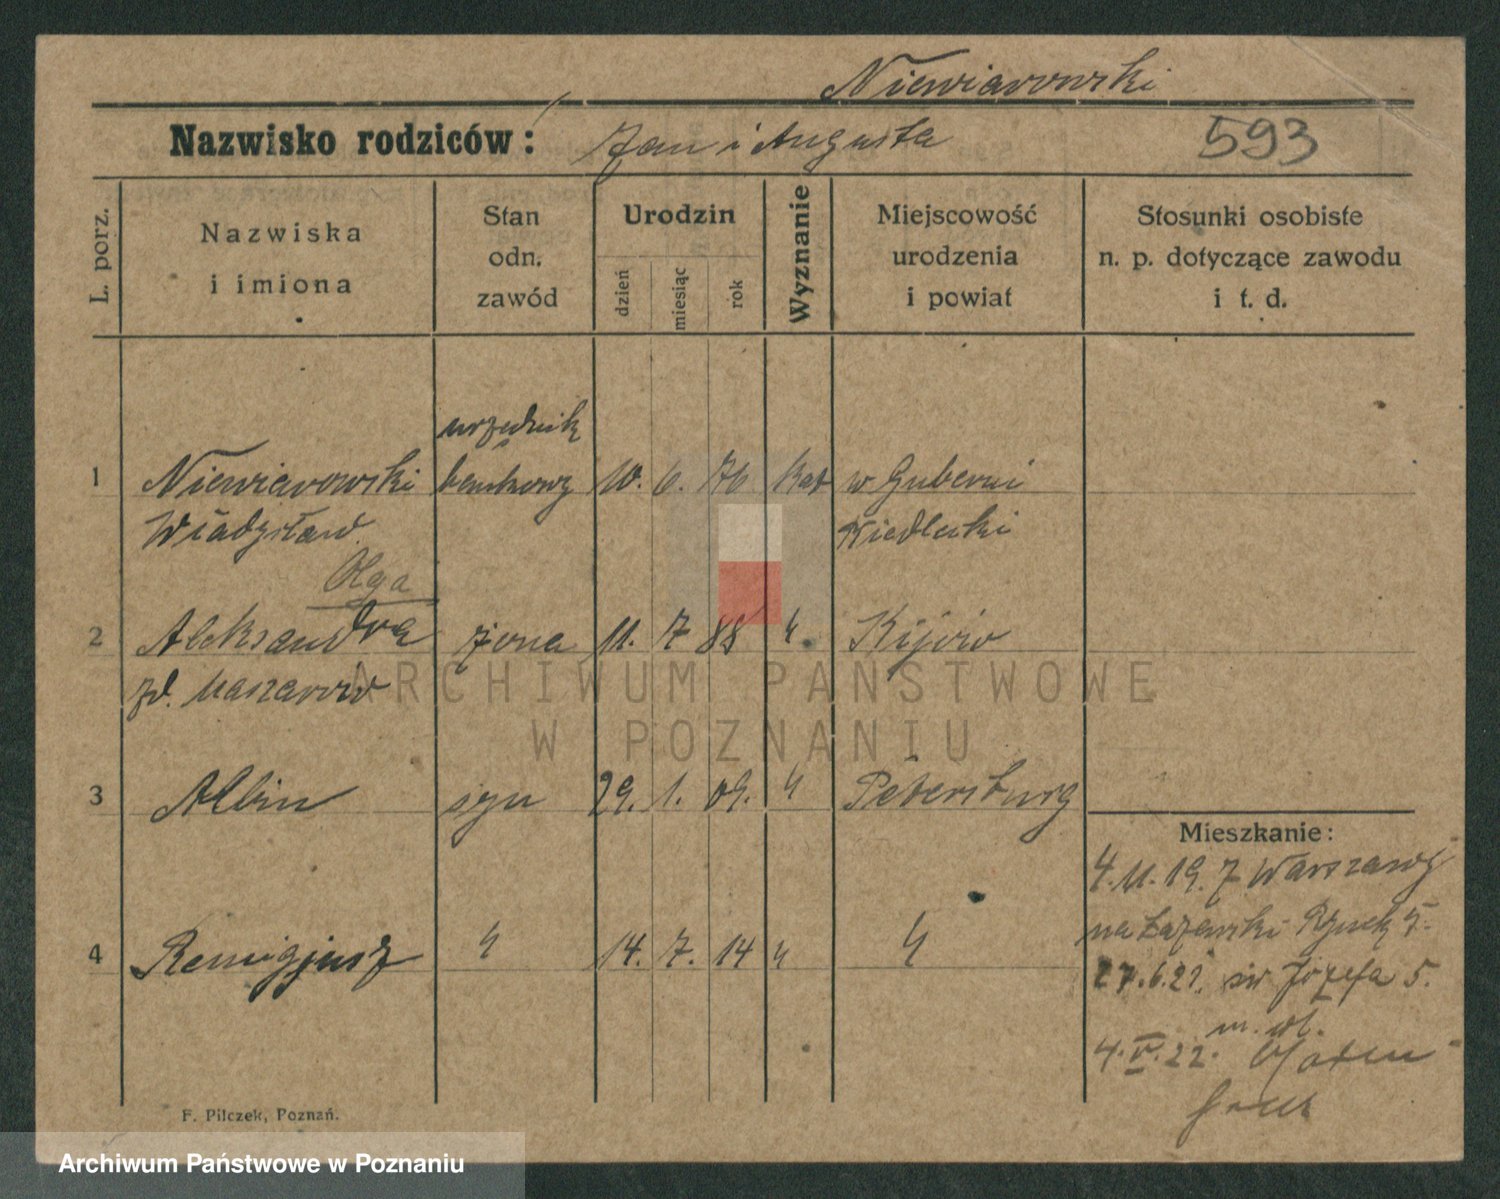 Niewiarowski
Nazwisko rodziców: Jan i Augusta 593
L. porz.
Nazwiska i imiona
Stan odn. zawód
Urodzin
dzień miesiąc rok
Wyznanie
Miejscowość urodzenia i powiat
Stosunki osobiste n. p. dotyczące zawodu i t. d.
urzędnik
1 Niewiarowski bankowy 10. 6. 76 kat w Guberni
Władysław Siedlecki
Olga
2 Aleksandra żona 11. 7 88 " Kijów
zd. Maszarow
3 Albin syn 29. 1. 09. " Petersburg
Mieszkanie:
4.11.19. z Warszawy
na Łazarski Rynek 5.
4 Remigjusz " 14. 7. 14 " "
27.6.21. św Józefa 5.
m. wł.
4.V.22.
F. Pilczek, Poznań.
ARCHIWUM PAŃSTWOWE
W POZNANIU
Archiwum Państwowe w Poznaniu